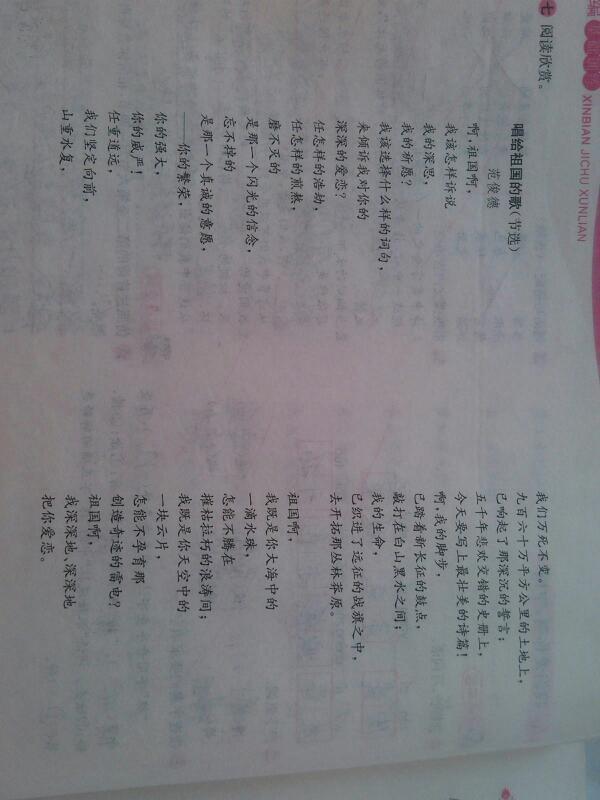 编
XINBIAN JICHU XUNLIAN
七 阅读欣赏。
唱给祖国的歌(节选)
范俊德
啊,祖国啊,
我该怎样诉说
我的深思,
我的祈愿?
我该选择什么样的词句,
来倾诉我对你的
深深的爱恋?
任怎样的浩劫,
任怎样的煎熬,
磨不灭的
是那一个闪光的信念,
忘不掉的
是那一个真诚的意愿,
——你的繁荣,
你的强大,
你的威严!
任重道远,
我们坚定向前,
山重水复,
我们万死不变。
九百六十万平方公里的土地上,
已响起了那深沉的誓言;
五千年悲欢交错的史册上,
今天要写上最壮美的诗篇!
啊,我的脚步,
已踏着新长征的鼓点,
敲打在白山黑水之间;
我的生命,
已织进了远征的战旗之中,
去开拓那丛林莽原。
祖国啊,
我既是你大海中的
一滴水珠,
怎能不腾在
摧枯拉朽的浪涛间;
我既是你天空中的
一块云片,
怎能不孕有那
创造奇迹的雷电?
祖国啊,
我深深地、深深地
把你爱恋。